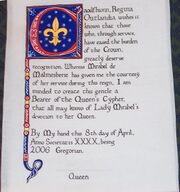 Regina
Outlandia, wishes it
known that those
who, through service,
have eased the burden
of the Crown,
greatly deserve
recognition. Whereas Mirabel de
Malmesbene has given me the courtesy
of her service during this reign, I am
minded to create this gentle a
Bearer of the Queen's Cypher,
that all may know of Lady Mirabel's
devotion to her Queen.
By My hand this 8th day of April,
Anno Societatis XXXX, being
2006 Gregorian.
Queen